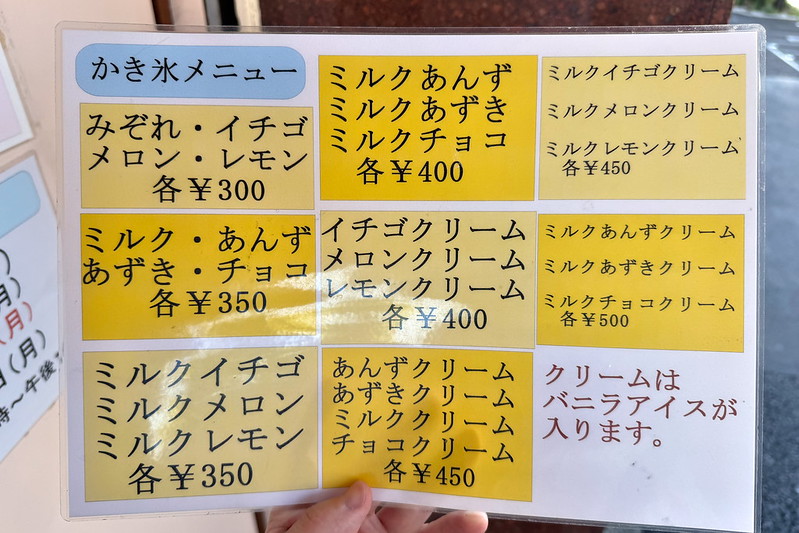 かき氷メニュー
みぞれ・イチゴ
メロン・レモン
各￥300
ミルク・あんず
あずき・チョコ
各￥350
ミルクイチゴ
ミルクメロン
ミルクレモン
各￥350
ミルクあんず
ミルクあずき
ミルクチョコ
各￥400
イチゴクリーム
メロンクリーム
レモンクリーム
各￥400
あんずクリーム
あずきクリーム
ミルククリーム
チョコクリーム
各￥450
ミルクイチゴクリーム
ミルクメロンクリーム
ミルクレモンクリーム
各￥450
ミルクあんずクリーム
ミルクあずきクリーム
ミルクチョコクリーム
各￥500
クリームは
バニラアイスが
入ります。
(月)
(月)
時～午後